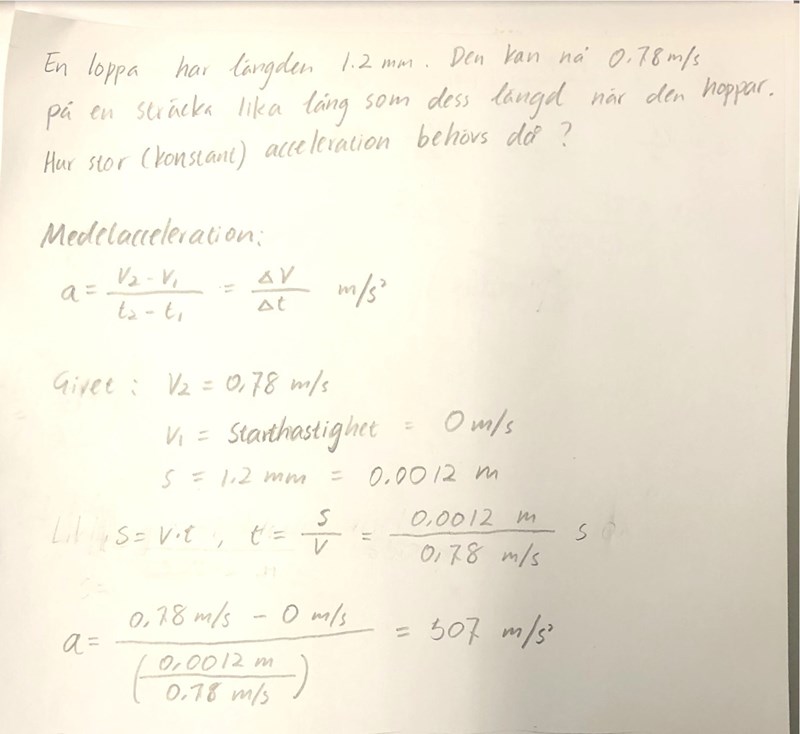 En loppa har längden 1.2 mm. Den kan nå 0.78 m/s
på en sträcka lika lång som dess längd när den hoppar.
Hur stor (konstant) acceleration behövs då?
Medelacceleration:
a = (V₂ - V₁)/(t₂ - t₁) = ΔV/Δt m/s²
Givet: V₂ = 0,78 m/s
V₁ = Starthastighet = 0 m/s
s = 1.2 mm = 0.0012 m
s = v·t, t = s/v = (0,0012 m)/(0,78 m/s) s
a = (0,78 m/s - 0 m/s)/((0,0012 m)/(0.78 m/s)) = 507 m/s²